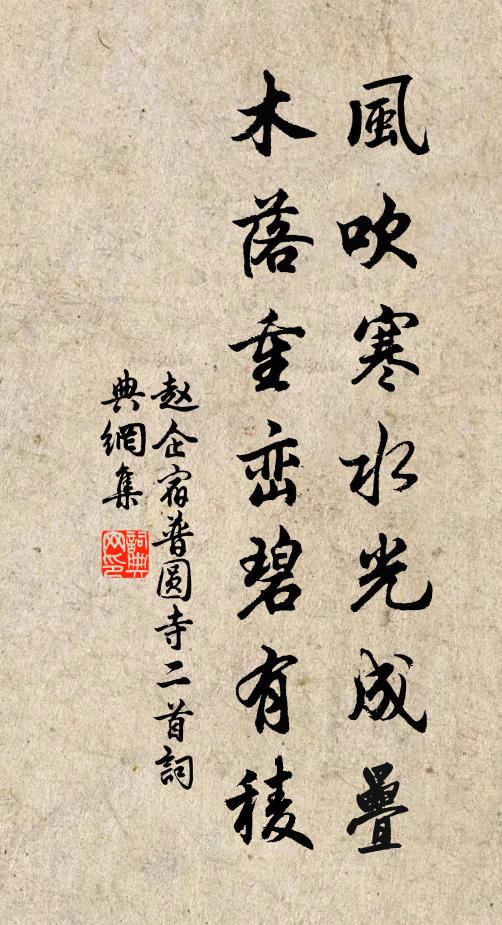 風吹寒水光成疊
木落重峦碧有稜
赵企宿普圆寺二首詞
典網集
詞典网印